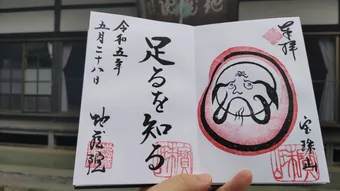 奉拝
宝珠山
足るを知る
令和五年
五月二十八日
地蔵院